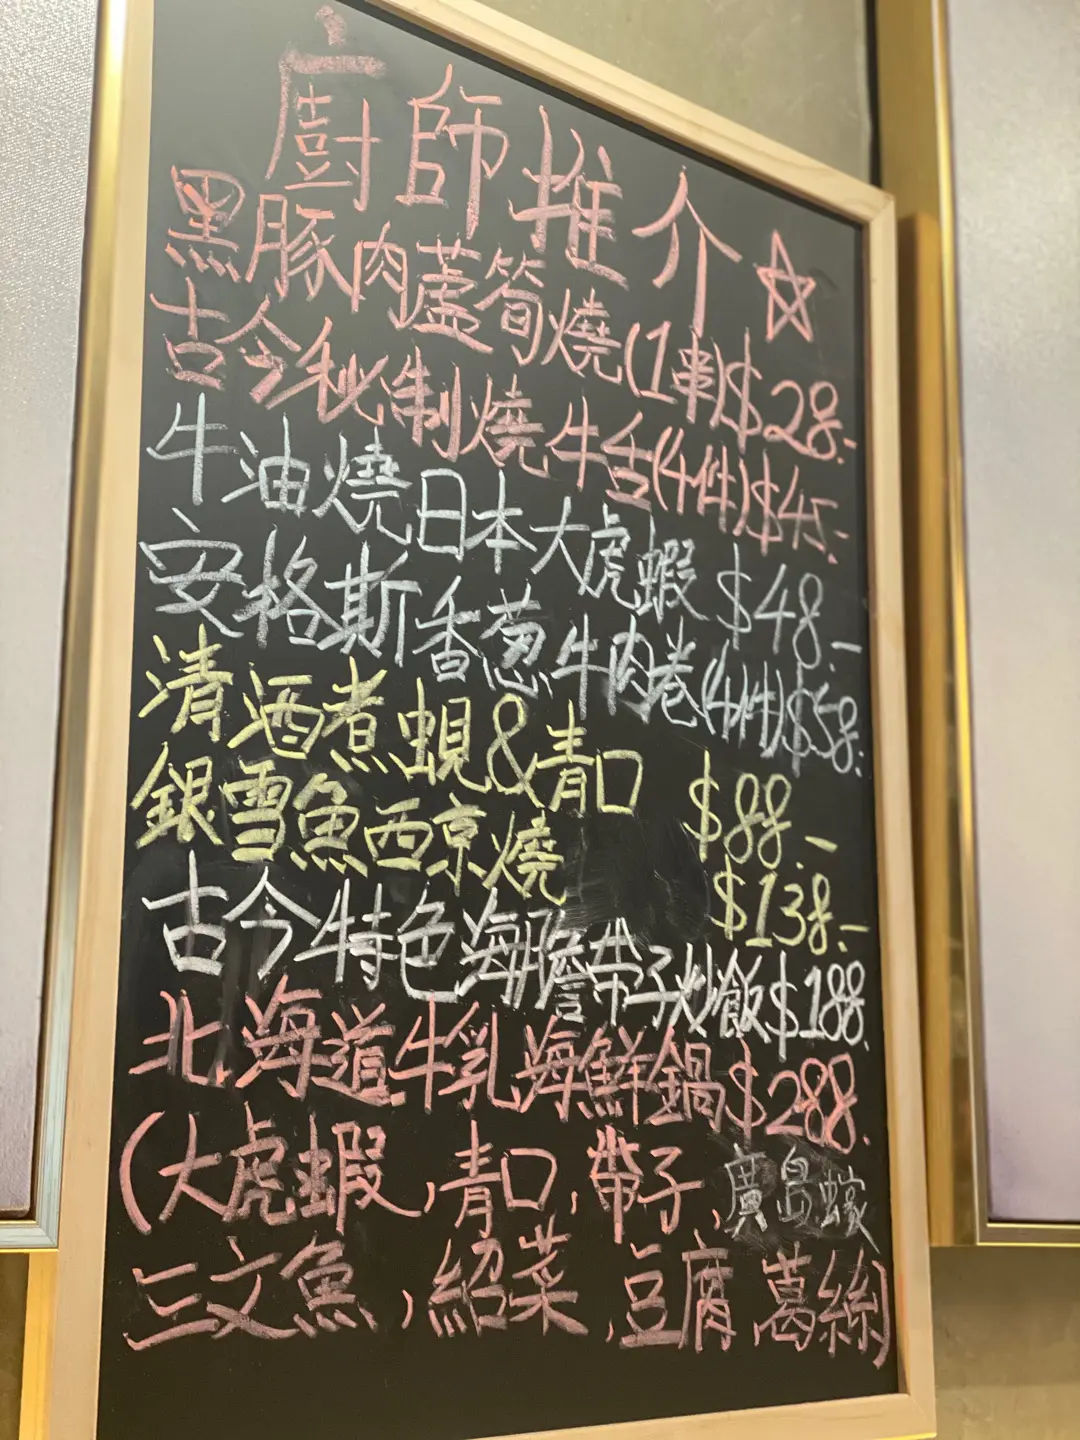 廚師推介☆
黑豚肉蘆筍燒(1串)$28.-
古今秘制燒牛舌(4件)$45.-
牛油燒日本大虎蝦 $48.-
安格斯香葱牛肉卷(4件)$58.
清酒煮蜆&青口 $88.-
銀雪魚西京燒 $138.-
古今特色海膽帶子炒飯$188.
北海道牛乳海鮮鍋$288.
(大虎蝦,青口,帶子,廣島蠔
三文魚,紹菜,豆腐 葛絲)